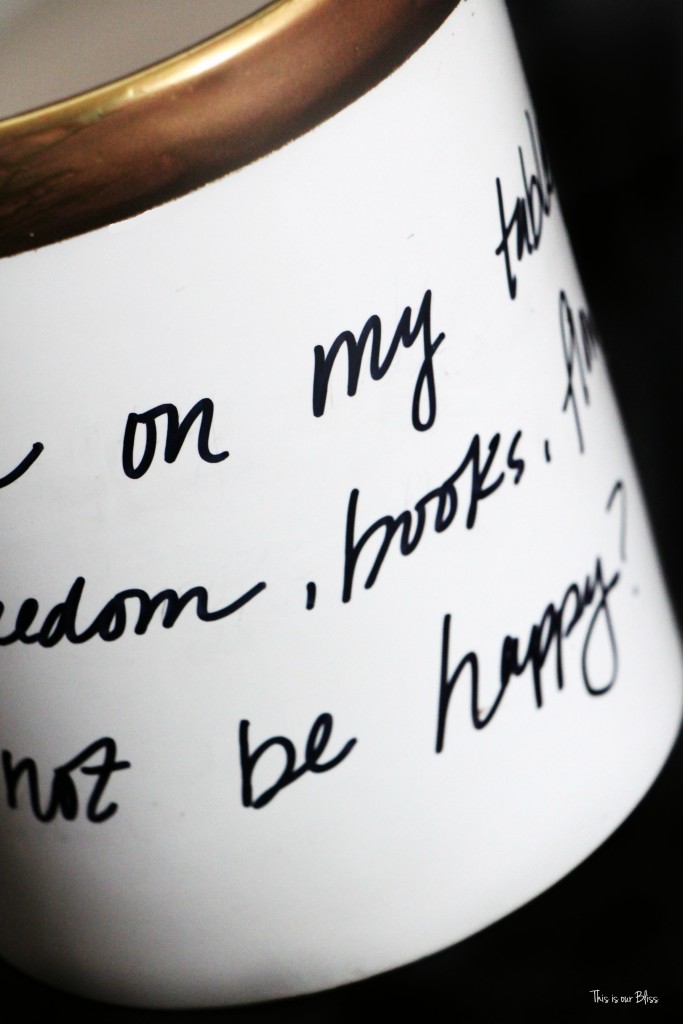 on my table
eedom, books, flo
not be happy?
This is our Bliss